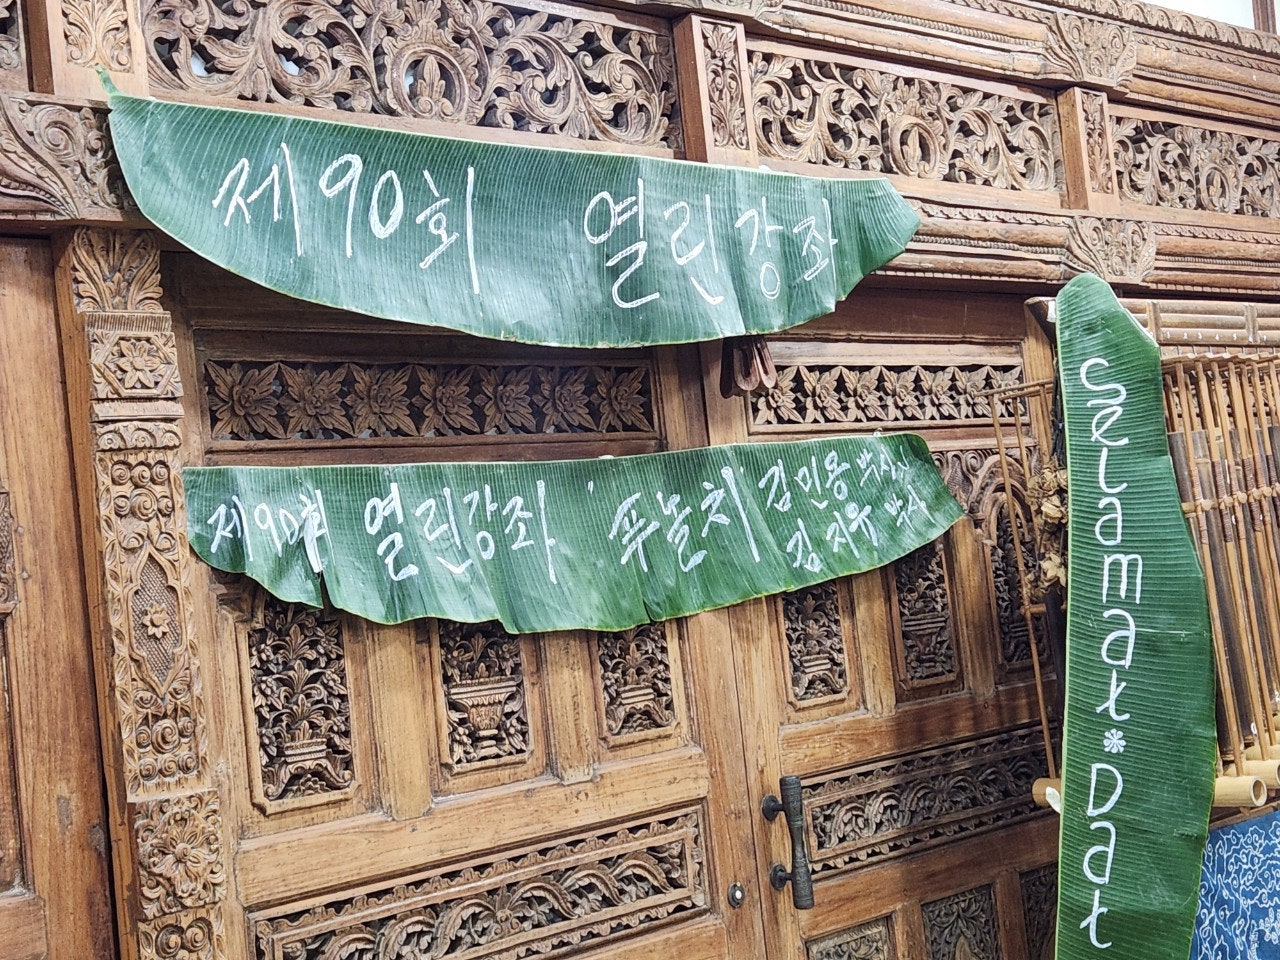 제90회 열린강좌
제90회 열린강좌 '푸놀치' 김민용 박사
김지유 박사
Selamat * Dat